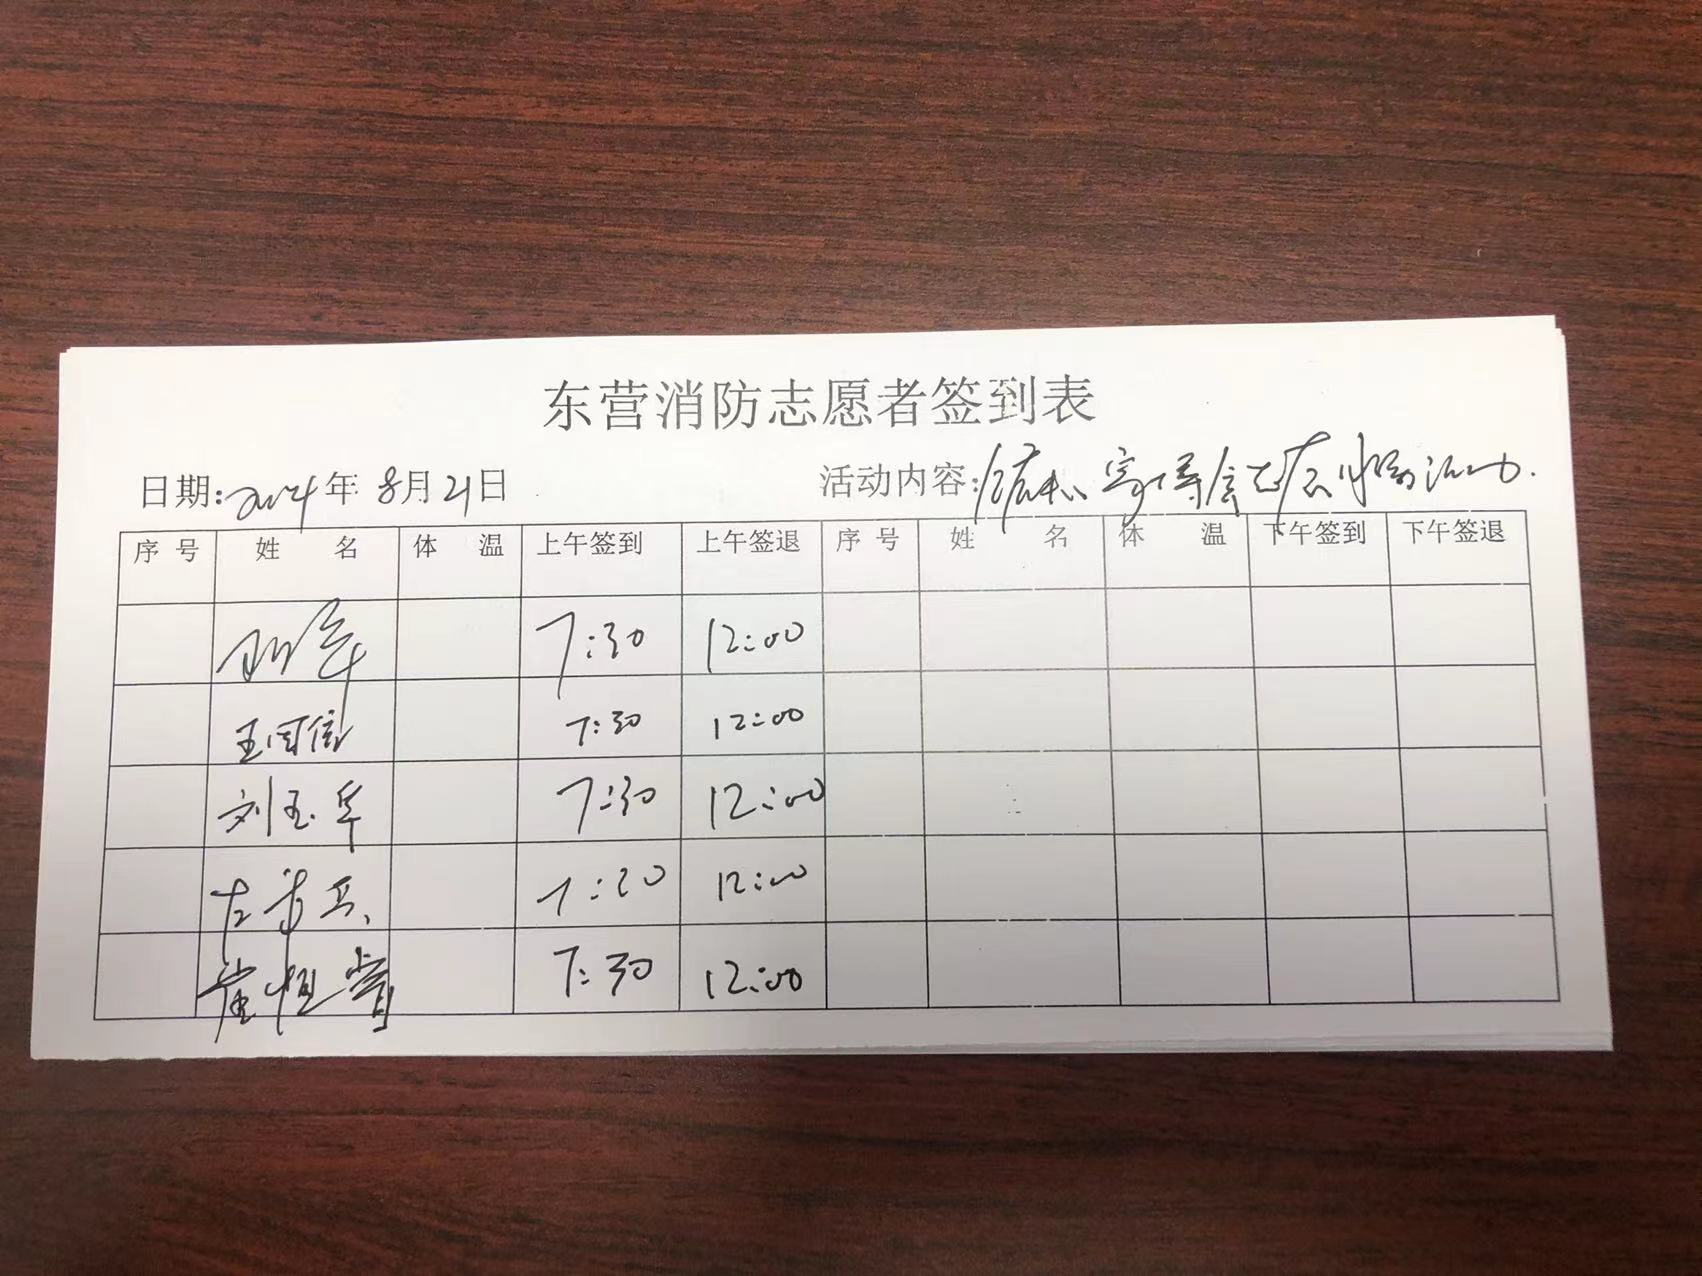 东营消防志愿者签到表
日期:2024年8月21日 活动内容:
序号 姓名 体温 上午签到 上午签退 序号 姓名 体温 下午签到 下午签退
7:30 12:00
王国信 7:30 12:00
刘玉军 7:30 12:00
7:30 12:00
崔恒营 7:30 12:00